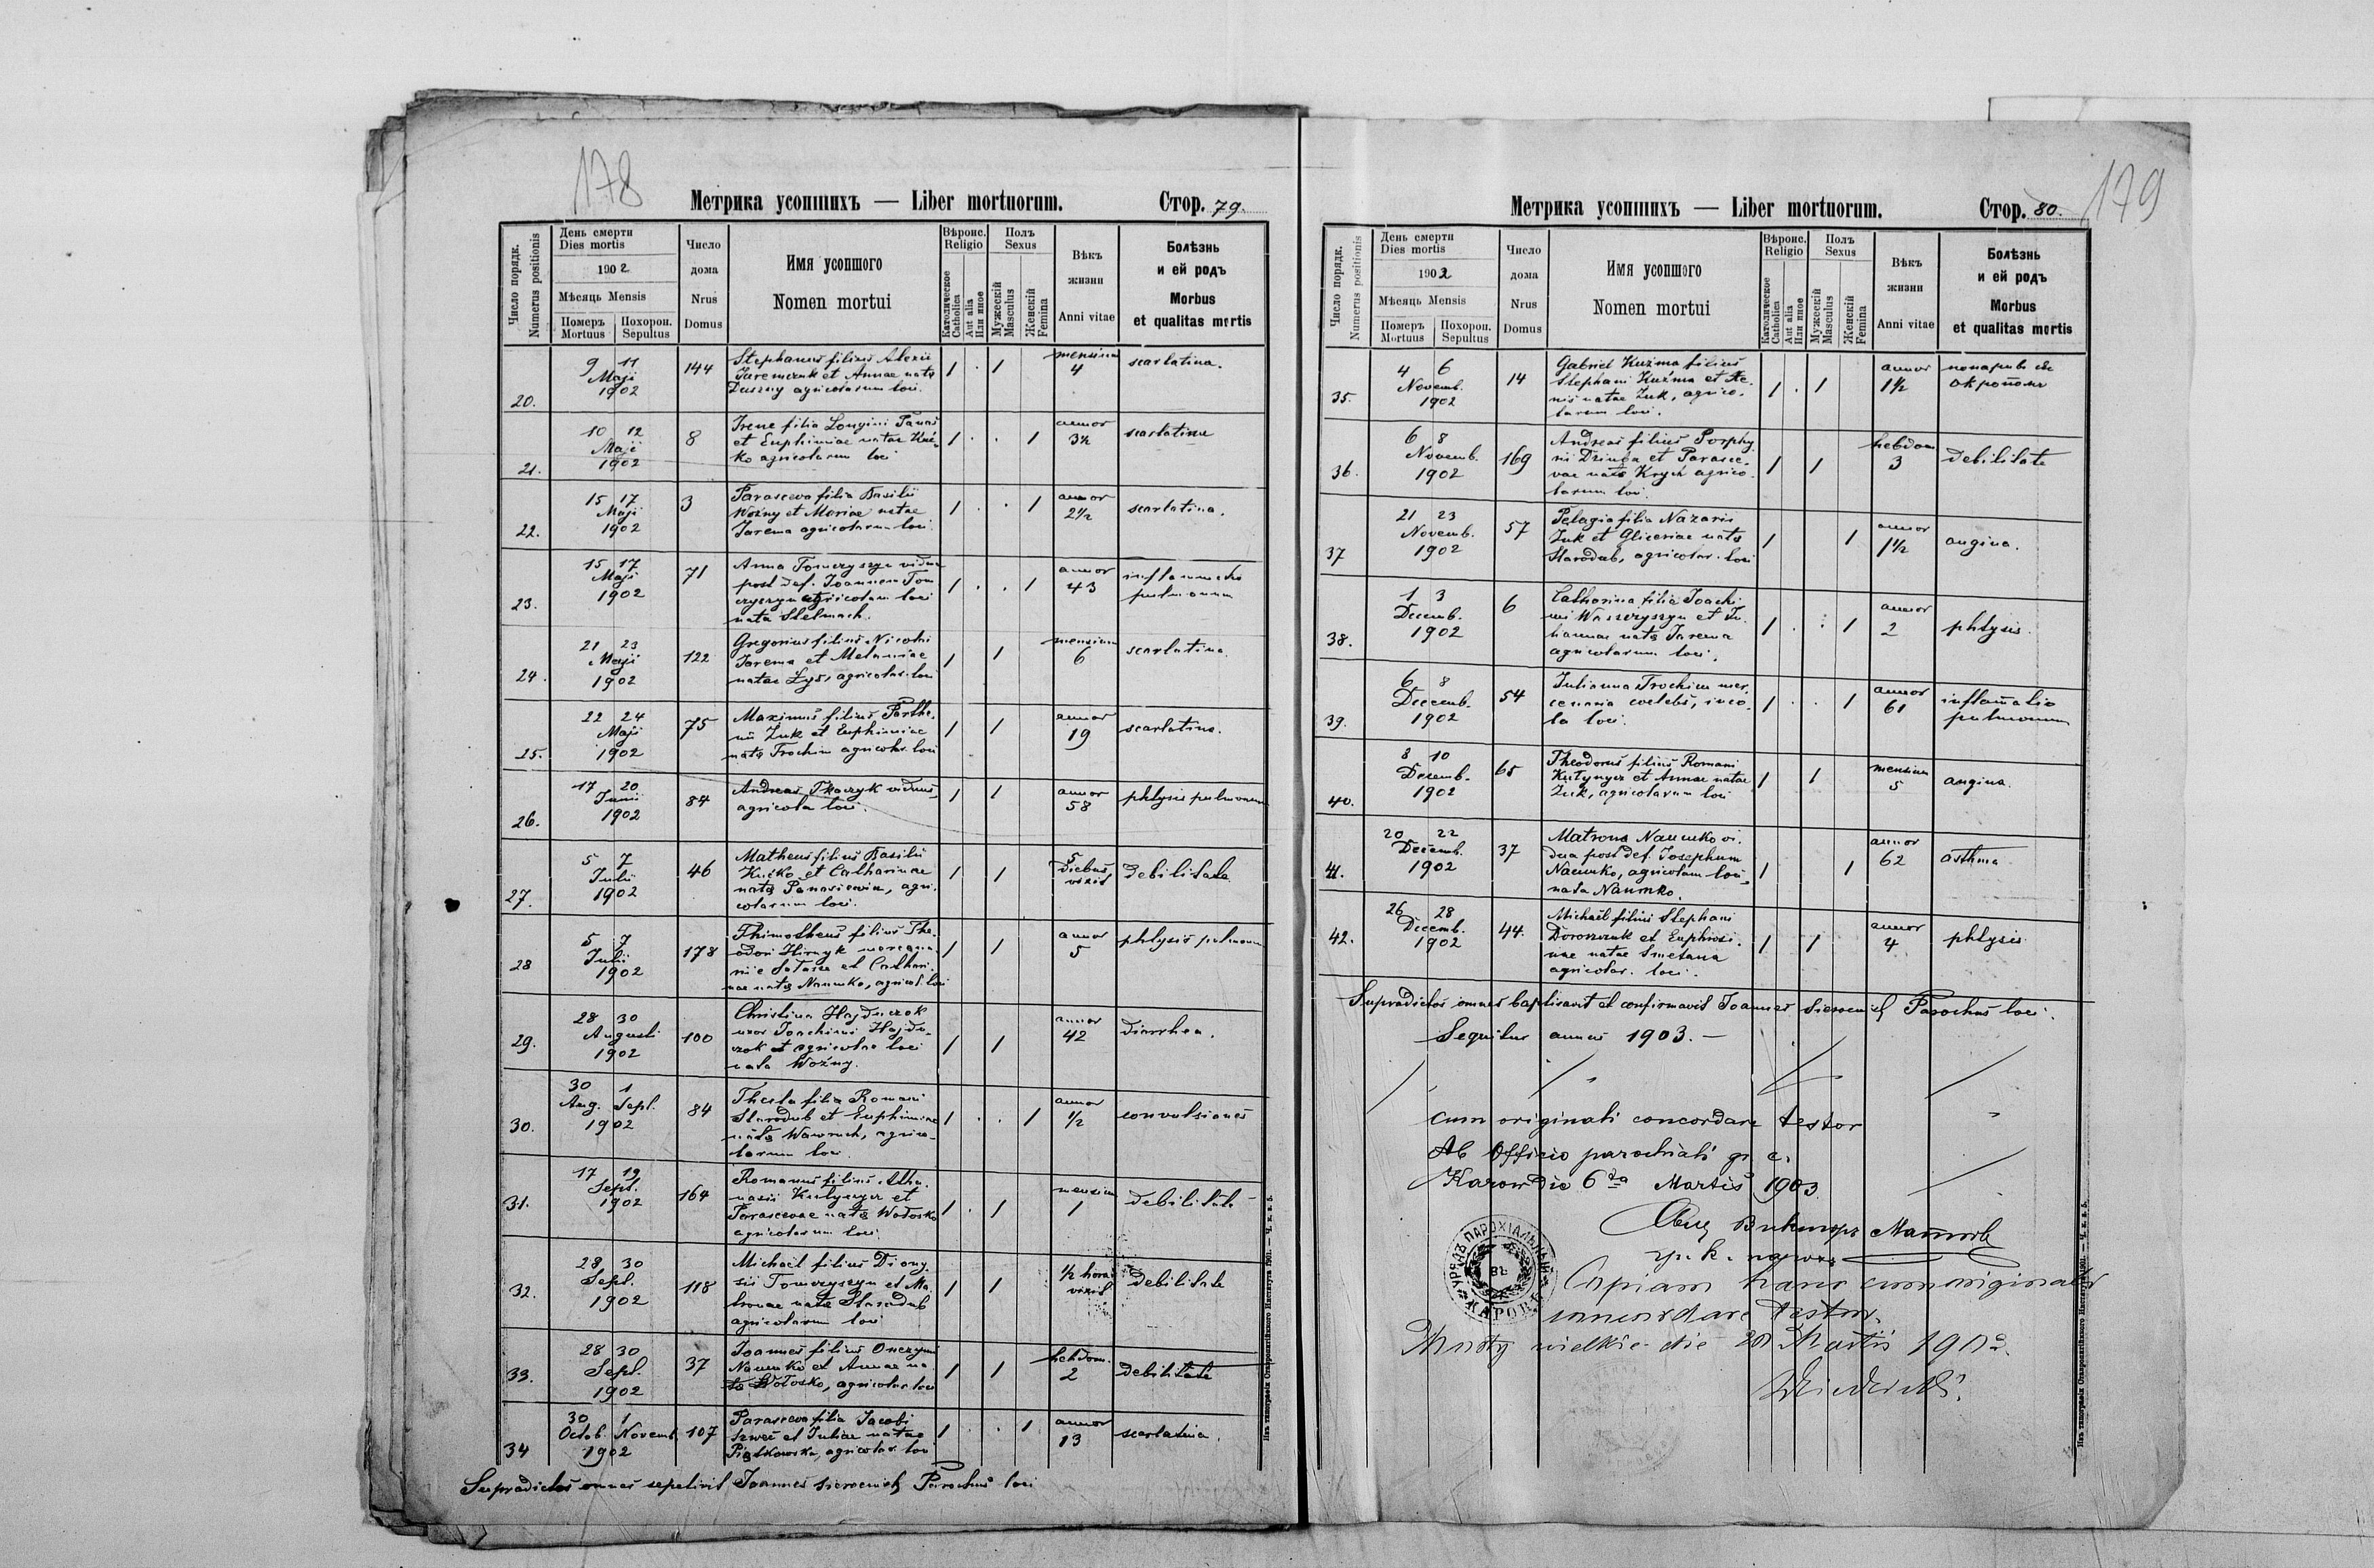 178
Метрика усопшихъ — Liber mortuorum.
Стор. 79.
Число порядк.
Numerus positionis
День смерти
Dies mortis
1902.
Мѣсяць Mensis
Померъ Похорон.
Mortuus Sepultus
Число
дома
Nrus
Domus
Имя усопшого
Nomen mortui
Вѣроис.
Religio
Католическое
Catholica
Aut alia
Или иное
Полъ
Sexus
Мужескій
Masculus
Женскій
Femina
Вѣкъ
жизни
Anni vitae
Болѣзнь
и ей родъ
Morbus
et qualitas mortis
20.
9 11
Maji
1902
144
Stephanus filius Alexii
Jaremczuk et Annae nata
Duszny agricolarum loci.
1 . 1
mensium
4
scarlatina.
21.
10 12
Maji
1902
8
Irene filia Longini Panas
et Euphimiae natae
ko agricolarum loci
1 . . 1
annor
3½
scarlatina
22.
15 17
Maji
1902
3
Parasceva filia Basilii
Woźny et Mariae natae
Jarema agricolarum loci.
1 . . 1
annor
2½
scarlatina.
23.
15 17
Maji
1902
71
Anna Tomczyszyn vidua
post def. Joannem Tom
czyszyn agricolam loci
nata Stelmach.
1 . . 1
annor
43
inflammatio
pulmonum
24.
21 23
Maji
1902
122
Gregorius filius Nicolai
Jarema et Melaniae
natae Łyś, agricolar. loci
1 1
mensium
6
scarlatina.
25.
22 24
Maji
1902
75
Maximus filius Parthe.
nii Żuk et Euphimiae
nata Trochim agricolar. loci
1 1
annor
19
scarlatina.
26.
17 20
Junii
1902
84
Andreas Tkaczyk viduus,
agricola loci.
1 1
annor
58
phtysis pulmonum
27.
5 7
Julii
1902
46
Matheus filius Basilii
Kuśko et Catharinae
nata Panasiewicz, agri.
colarum loci.
1 1
5
Diebus
vixit
debilitate
28
5 7
Julii
1902
178
Thimotheus filius The.
odori Hirnyk
et Cathari.
nae nata Naumko, agricol. loci
1 1
annor
5
phtysis pulmonum
29.
28 30
Augusti
1902
100
Christina Hajduczok
uxor Joachimi Hajdu-
czok agricolae loci
nata Woźny.
1 1
annor
42
diarrhea.
30.
30 1
Aug. Sept.
1902
84
Thecla filia Romani
Starodub et Euphimiae
nata Wawruch, agrico-
larum loci.
1 . . 1
annor
½
convulsiones
31.
17 19
Sept.
1902
164
Romanus filius Atha.
nasii Kulynycz et
Parascevae nata Wołosko
agricolarum loci.
1 . 1
mensium
1
debilitate
32.
28 30
Sept.
1902
118
Michael filius Diony.
sii Tomczyszyn et Ma.
tronae nata Starodub
agricolarum loci
1 1
½ hora
vixit
debilitate
33.
28 30
Sept.
1902
37
Joannes filius Onczymi
Naumko et Annae na
ta Wołosko, agricolar. loci
1 1
hebdom.
2
debilitate
34
30 1
Octob. Novemb.
1902
107
Parasceva filia Jacobi
Szweć et Juliae natae
Piątkowska, agricolar. loci
1 . . 1
annor
13
scarlatina.
Supradictos omnes sepelivit Joannes Parochus loci
Изъ типографіи Ставропигійского Института 1901. — Ч. к. з. 5.
179
Метрика усопшихъ — Liber mortuorum.
Стор. 80.
Число порядк.
Numerus positionis
День смерти
Dies mortis
1902
Мѣсяць Mensis
Померъ Похорон.
Mortuus Sepultus
Число
дома
Nrus
Domus
Имя усопшого
Nomen mortui
Вѣроис.
Religio
Католическое
Catholica
Aut alia
Или иное
Полъ
Sexus
Мужескій
Masculus
Женскій
Femina
Вѣкъ
жизни
Anni vitae
Болѣзнь
и ей родъ
Morbus
et qualitas mortis
35.
4 6
Novemb.
1902
14
Gabriel Kuźma filius
Stephani Kuźma et Xe.
nis natae Żuk, agrico.
larum loci.
1 . 1
annor
1½
попаривъ ся
окропомъ
36.
6 8
Novemb.
1902
169
Andreas filius Porphy
rii Dziuba et Parasce.
vae nata Krych agrico.
larum loci.
1 1
hebdom
3
debilitate
37
21 23
Novemb.
1902
57
Pelagia filia Nazarii
Żuk et Gliceriae nata
Starodub, agricolar. loci
1 1
annor
1½
angina.
38.
1 3
Decemb.
1902
6
Catharina filia Joachi
mi Waszczyszyn et Ju.
liannae nata Jarema
agricolarum loci.
1 . : 1
annor
2
phtysis.
39.
6 8
Decemb.
1902
54
Julianna Trochim mer.
cenaria coelebs, inco.
la loci.
1 . . 1
annor
61
inflamatio
pulmonum
40.
8 10
Decemb.
1902
65
Theodorus filius Romani
Kulynycz et Annae natae
Żuk, agricolarum loci
1 1
mensium
5
angina.
41.
20 22
Decemb.
1902
37
Matrona Naumko vi.
dua post def. Josephum
Naumko, agricolam loci,
nata Naumko.
1 1
annor
62
asthma
42.
26 28
Decemb.
1902
44.
Michaël filius Stephani
Doroszczuk et Euphrosi.
nae natae Smetana
agricolar. loci.
1 1
annor
4
phtysis
Supradictos omnes baptisavit et confirmavit Joannes Parochus loci.
Sequitur annus 1903. —
Cum originali concordare testor
Ab Officio parochiali gr. c.
Karow die 6ta Martis 1903
Викторъ
гр. к.
УРЯДЪ ПАРОХІАЛЬНЫЙ
ВЪ
КАРОВѢ
Copiam hanc cum originali
concordare testor.
Mosty wielkie die 20 Martis 1903.
Изъ типографіи Ставропигійского Института 1901. — Ч. к. з. 5.